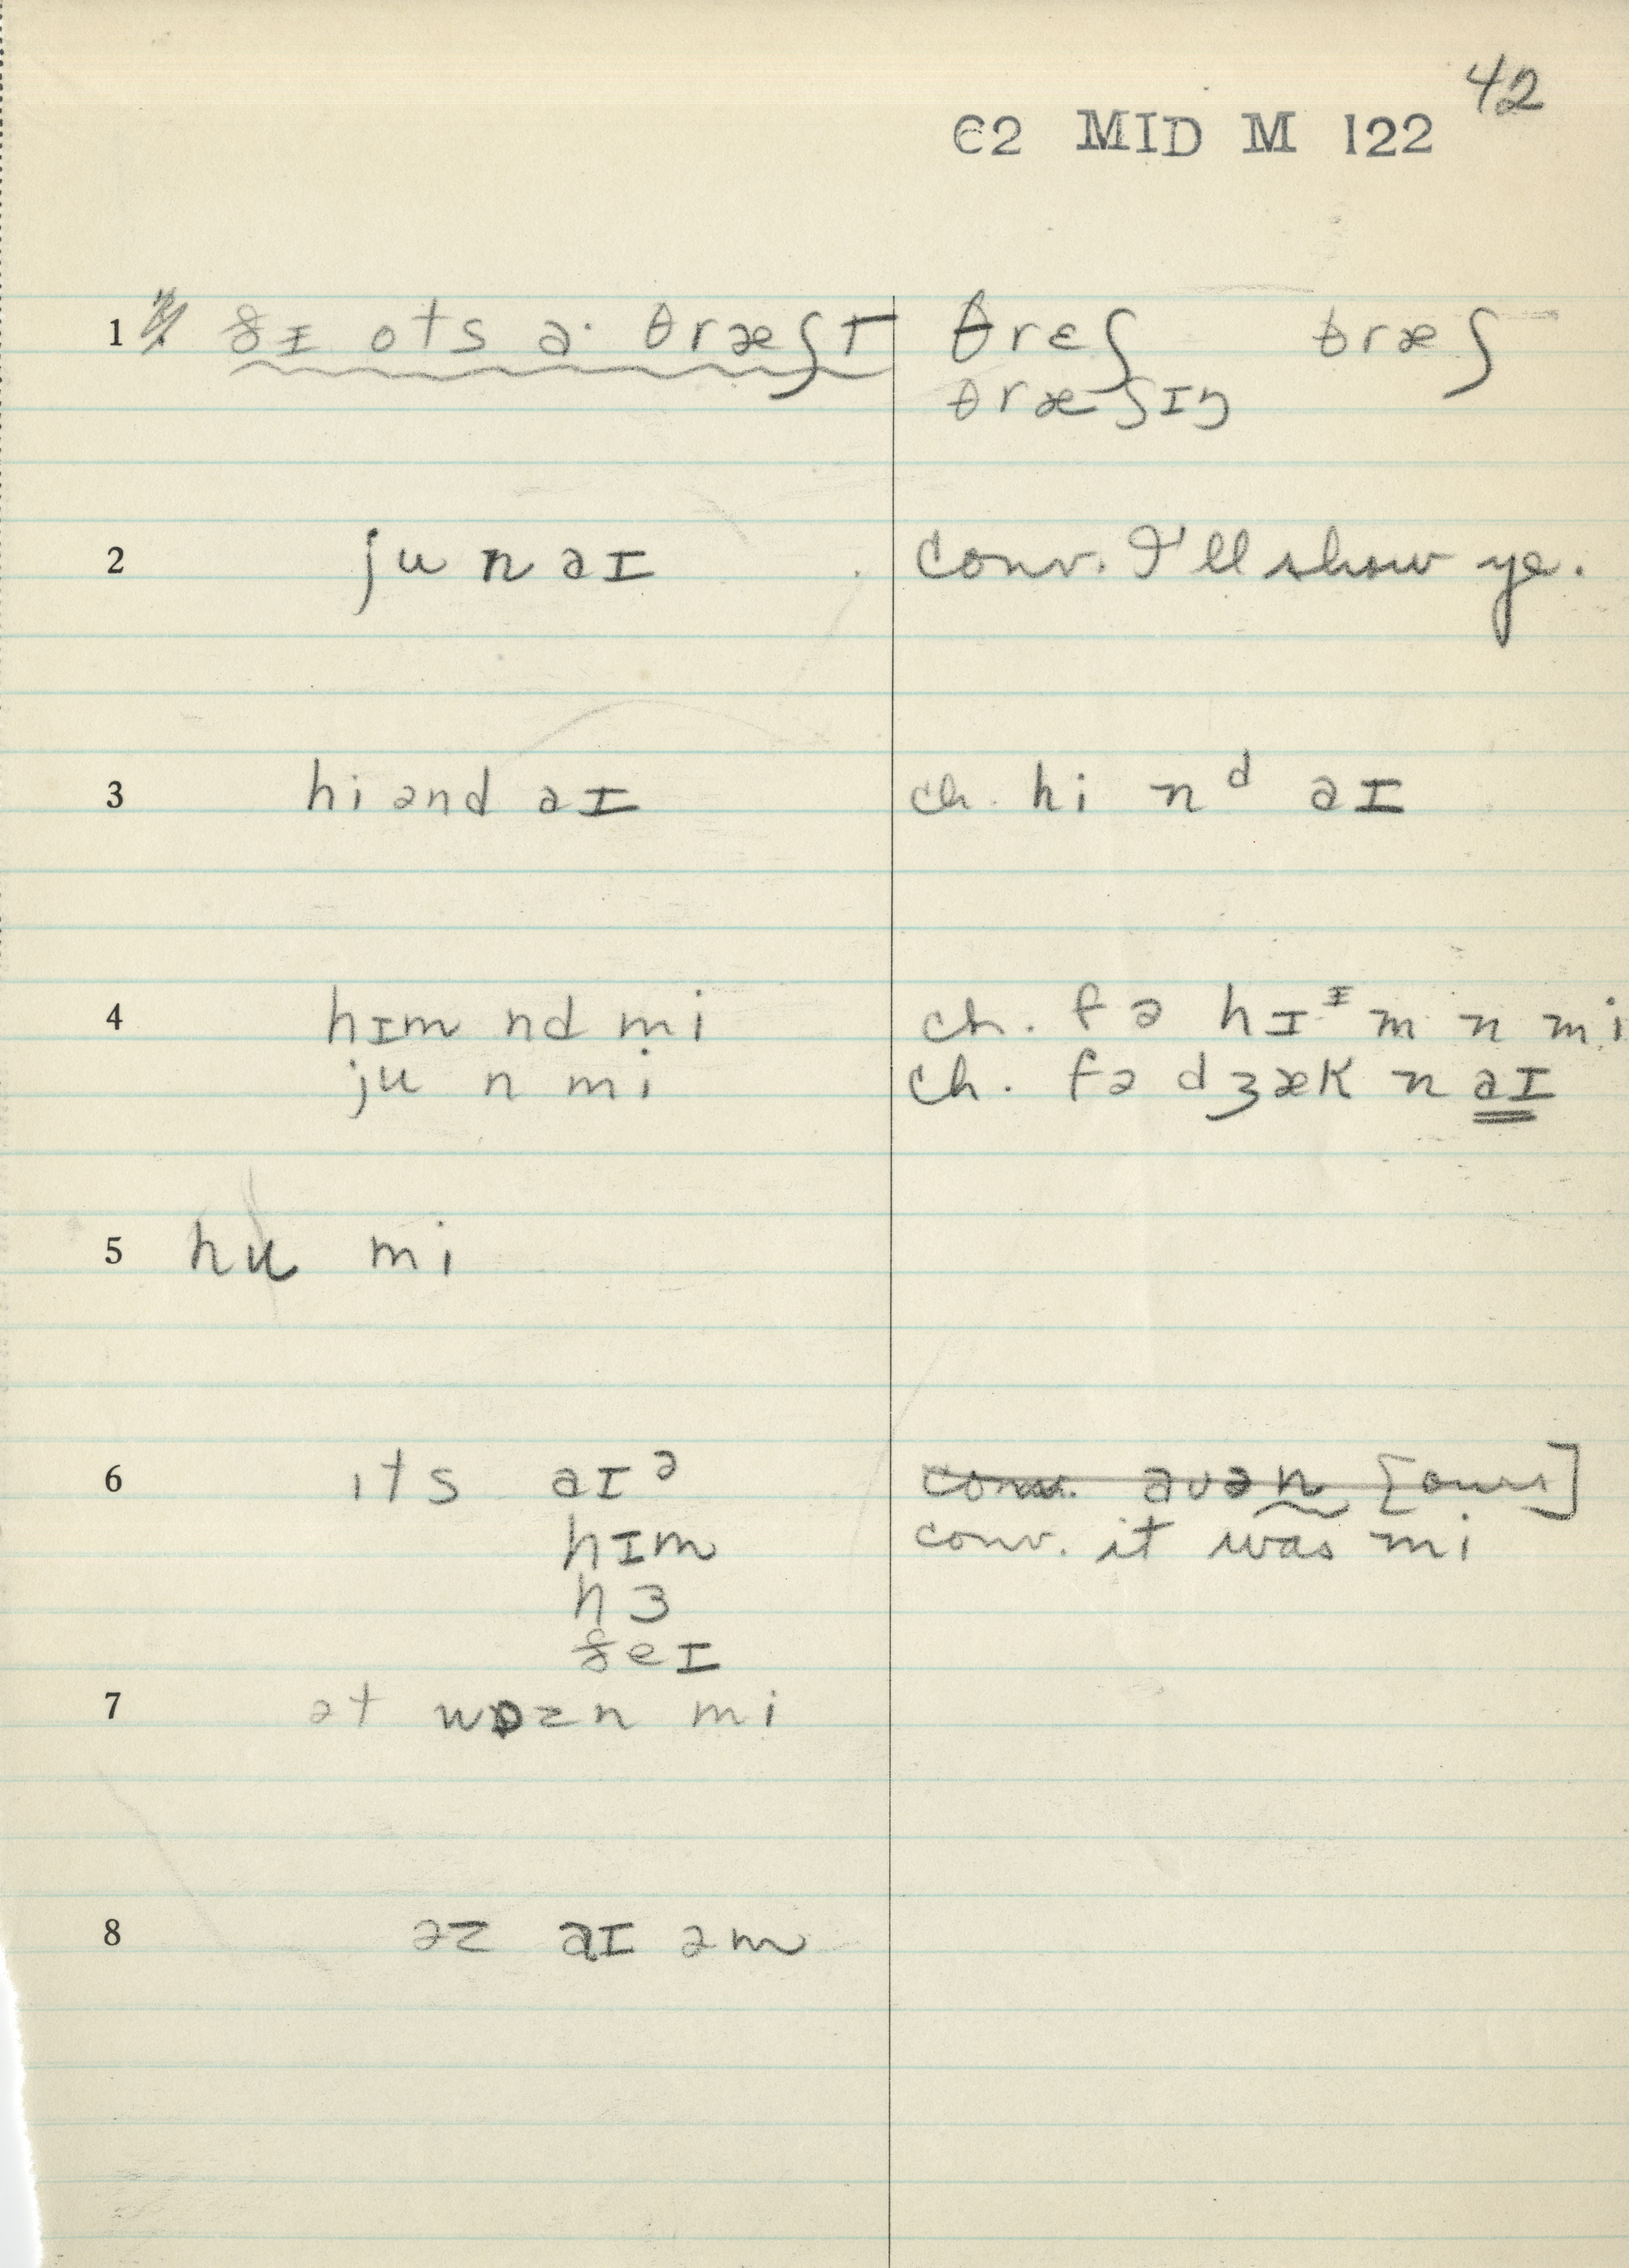 42
C2 MID M 122
1 ðɪ ots a· θræʃt θrɛʃ θræʃ
θræʃɪŋ
2 ju n aɪ conv. I'll show ye.
3 hi ənd aɪ ch. hi nᵈ aɪ
4 hɪm nd mi ch. fə hɪᶦm n mi
ju n mi ch. fə dʒæk n aɪ
5 hu mi
6 ɪts aɪᵊ conv. aʊən [ours]
hɪm conv. it was mi
hɜ
ðeɪ
7 ət wɒzn mi
8 əz aɪ əm